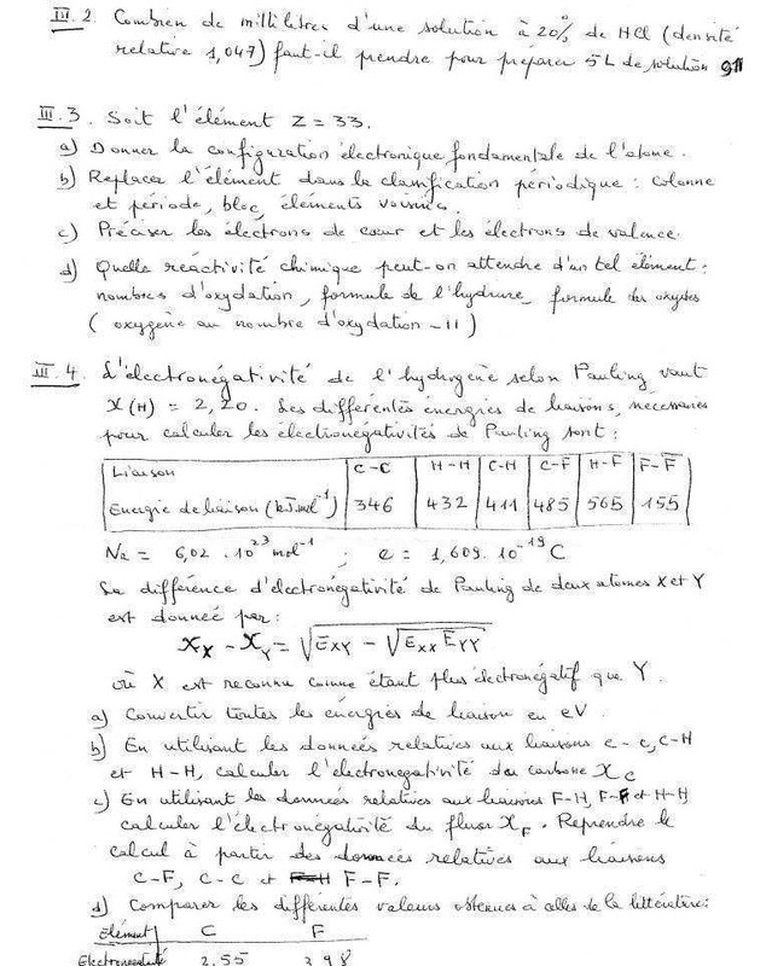 III.2 Combien de millilitres d'une solution à 20% de HCl (densité
relative 1,047) faut-il prendre pour préparer 5L de solution
III.3. Soit l'élément Z = 33.
a) Donner la configuration électronique fondamentale de l'atome.
b) Replacer l'élément dans la classification périodique : colonne
et période, bloc, éléments voisins.
c) Préciser les électrons de cœur et les électrons de valence.
d) Quelle réactivité chimique peut-on attendre d'un tel élément :
nombres d'oxydation, formule de l'hydrure, formule des oxydes
(oxygène au nombre d'oxydation -II)
III.4. L'électronégativité de l'hydrogène selon Pauling vaut
X(H) = 2,20. Les différentes énergies de liaisons, nécessaires
pour calculer les électronégativités de Pauling sont :
Liaison C-C H-H C-H C-F H-F F-F
Energie de liaison (kJ.mol⁻¹) 346 432 411 485 565 155
Na = 6,02 . 10²³ mol⁻¹ ; e = 1,609. 10⁻¹⁹ C
La différence d'électronégativité de Pauling de deux atomes X et Y
est donnée par :
X_X - X_Y = √(E_XY - √(E_XX E_YY))
où X est reconnu comme étant plus électronégatif que Y.
a) Convertir toutes les énergies de liaison en eV.
b) En utilisant les données relatives aux liaisons C-C, C-H
et H-H, calculer l'électronegativité du carbone X_C
c) En utilisant les données relatives aux liaisons F-H, F-F et H-H
calculer l'électronégativité du fluor X_F. Reprendre le
calcul à partir des données relatives aux liaisons
C-F, C-C et F-F.
d) Comparer les différentes valeurs obtenues à celles de la littérature:
Elément C F
Electronégativité 2,55 3,98